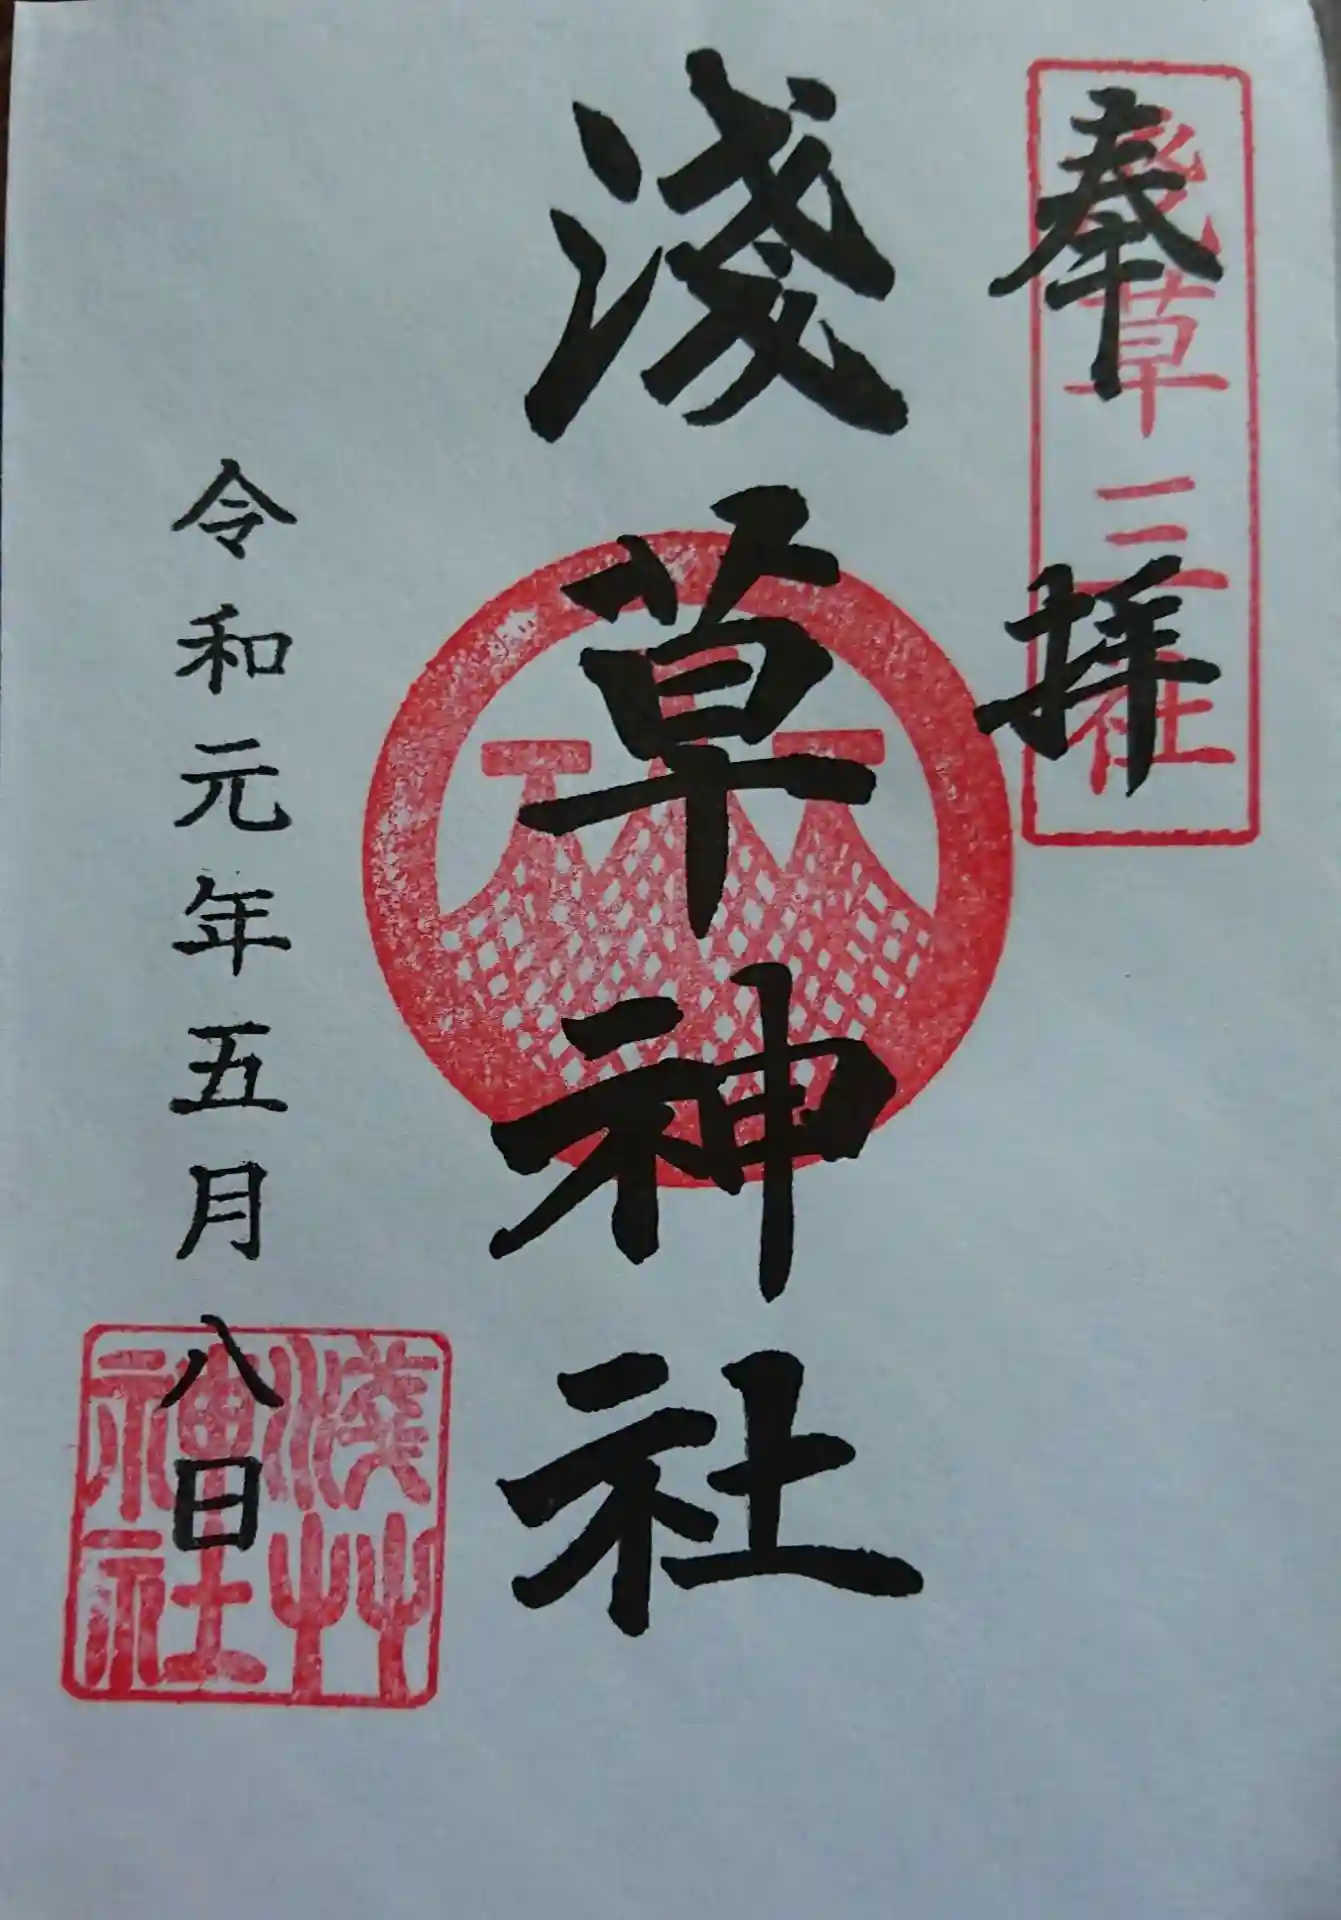 奉拝
浅草三社
淺草神社
令和元年五月八日
淺艸
神社